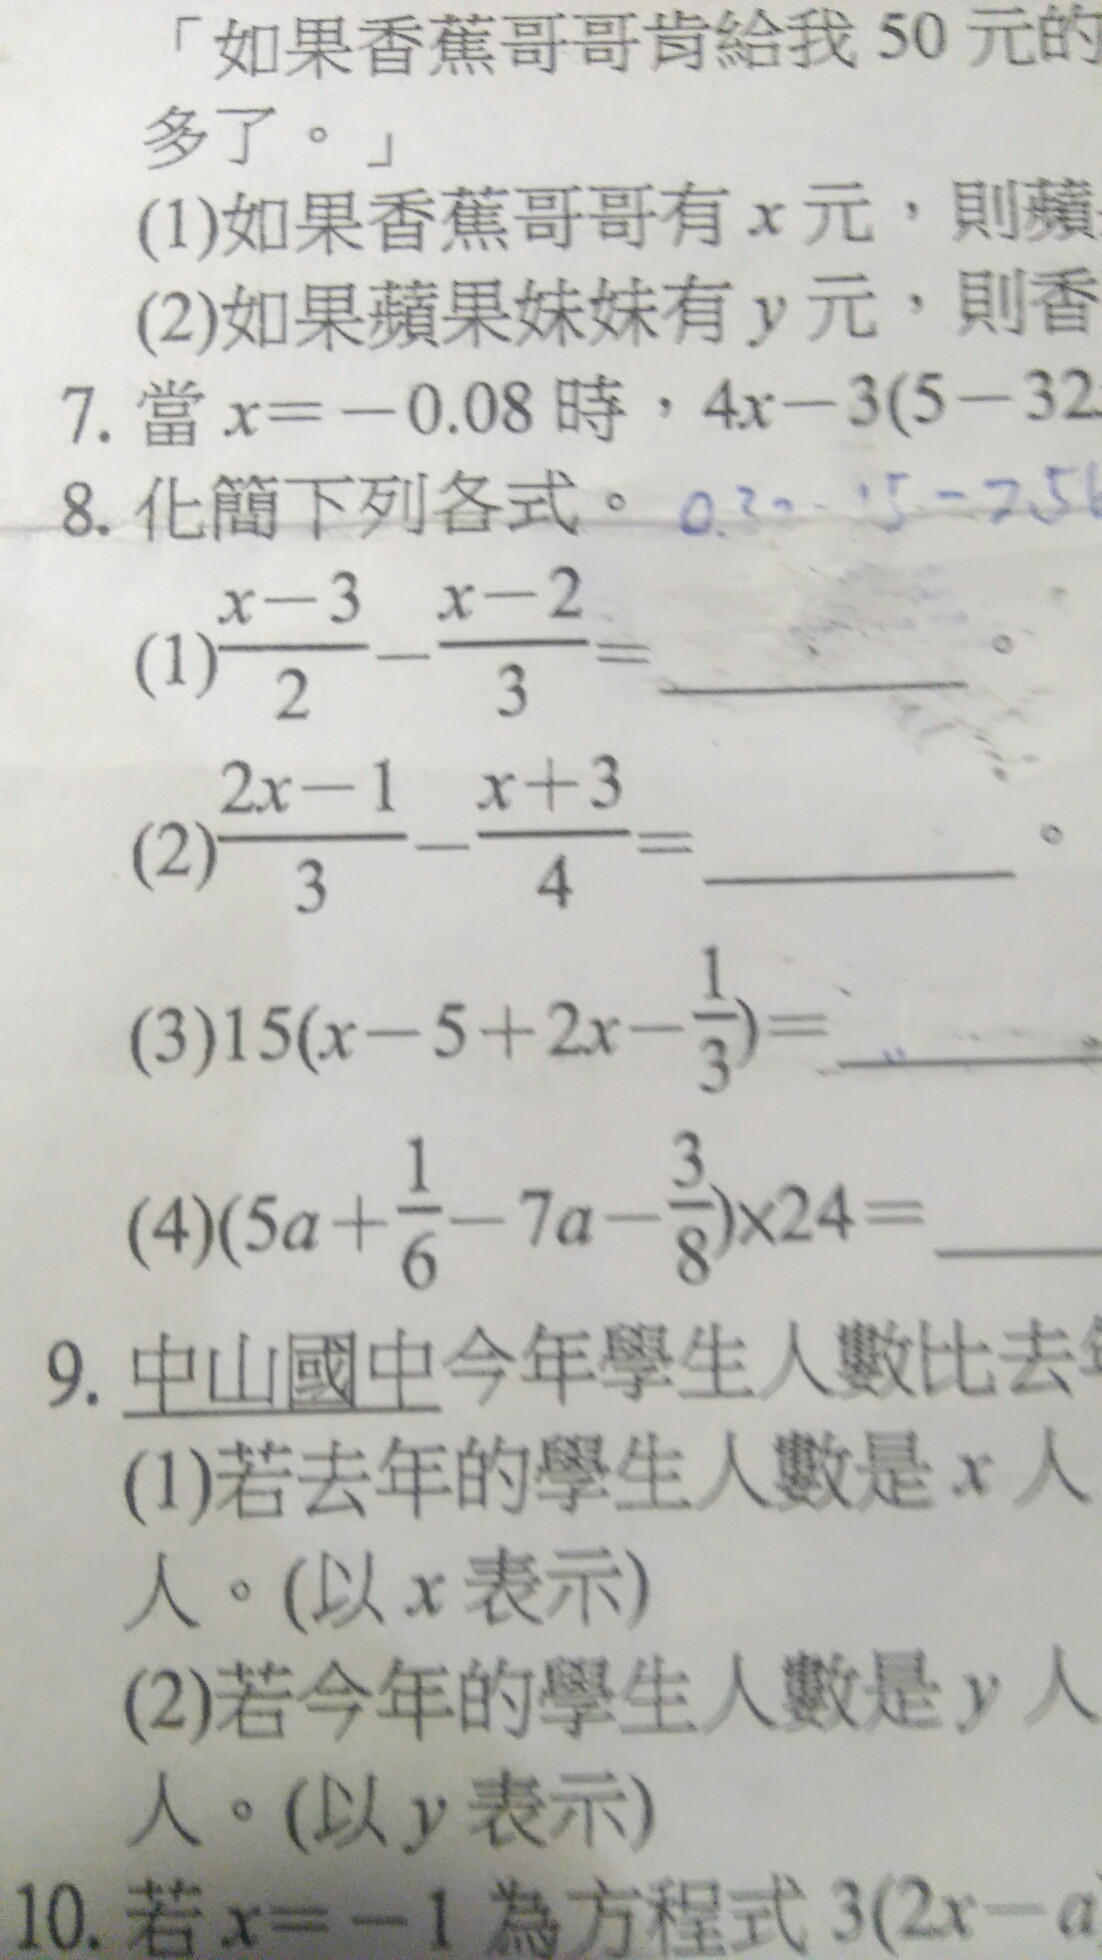 「如果香蕉哥哥肯給我 50 元的
多了。」
(1)如果香蕉哥哥有 x 元，則蘋
(2)如果蘋果妹妹有 y 元，則香
7. 當 x＝－0.08 時，4x－3(5－32
8. 化簡下列各式。
(1)\frac{x－3}{2}－\frac{x－2}{3}＝______。
(2)\frac{2x－1}{3}－\frac{x＋3}{4}＝______。
(3)15(x－5＋2x－\frac{1}{3})＝______
(4)(5a＋\frac{1}{6}－7a－\frac{3}{8})×24＝______
9. 中山國中今年學生人數比去年
(1)若去年的學生人數是 x 人
人。(以 x 表示)
(2)若今年的學生人數是 y 人
人。(以 y 表示)
10. 若 x＝－1 為方程式 3(2x－a)